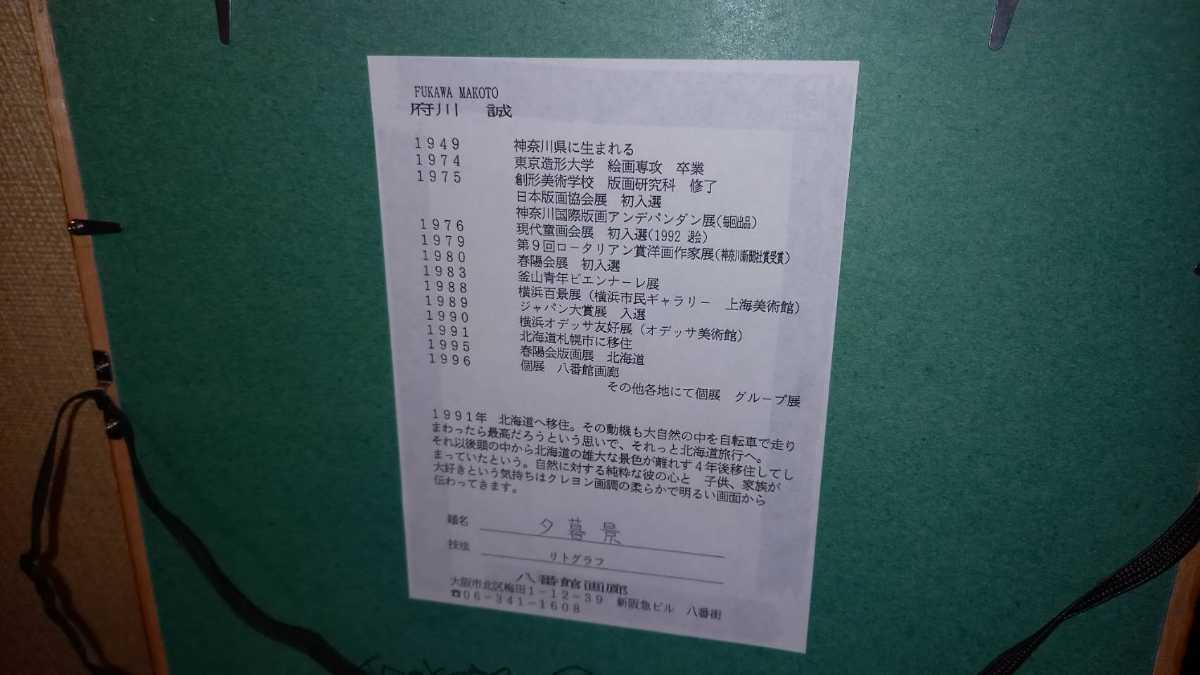 FUKAWA MAKOTO
府川 誠
1949 神奈川県に生まれる
1974 東京造形大学 絵画専攻 卒業
1975 創形美術学校 版画研究科 修了
日本版画協会展 初入選
神奈川国際版画アンデパンダン展(毎回出品)
1976 現代童画会展 初入選(1992 退会)
1979 第9回ロータリアン賞洋画作家展(神奈川新聞社賞受賞)
1980 春陽会展 初入選
1983 釜山青年ビエンナーレ展
1988 横浜百景展(横浜市民ギャラリー 上海美術館)
1989 ジャパン大賞展 入選
1990 横浜オデッサ友好展(オデッサ美術館)
1991 北海道札幌市に移住
1995 春陽会版画展 北海道
1996 個展 八番館画廊
その他各地にて個展 グループ展
1991年 北海道へ移住。その動機も大自然の中を自転車で走り
まわったら最高だろうという思いで、それっと北海道旅行へ。
それ以後頭の中から北海道の雄大な景色が離れず4年後移住してし
まっていたという。自然に対する純粋な彼の心と 子供、家族が
大好きという気持ちはクレヨン画調の柔らかで明るい画面から
伝わってきます。
題名 夕暮景
技法 リトグラフ
八番館画廊
大阪市北区梅田1-12-39 新阪急ビル 八番街
☎06-341-1608